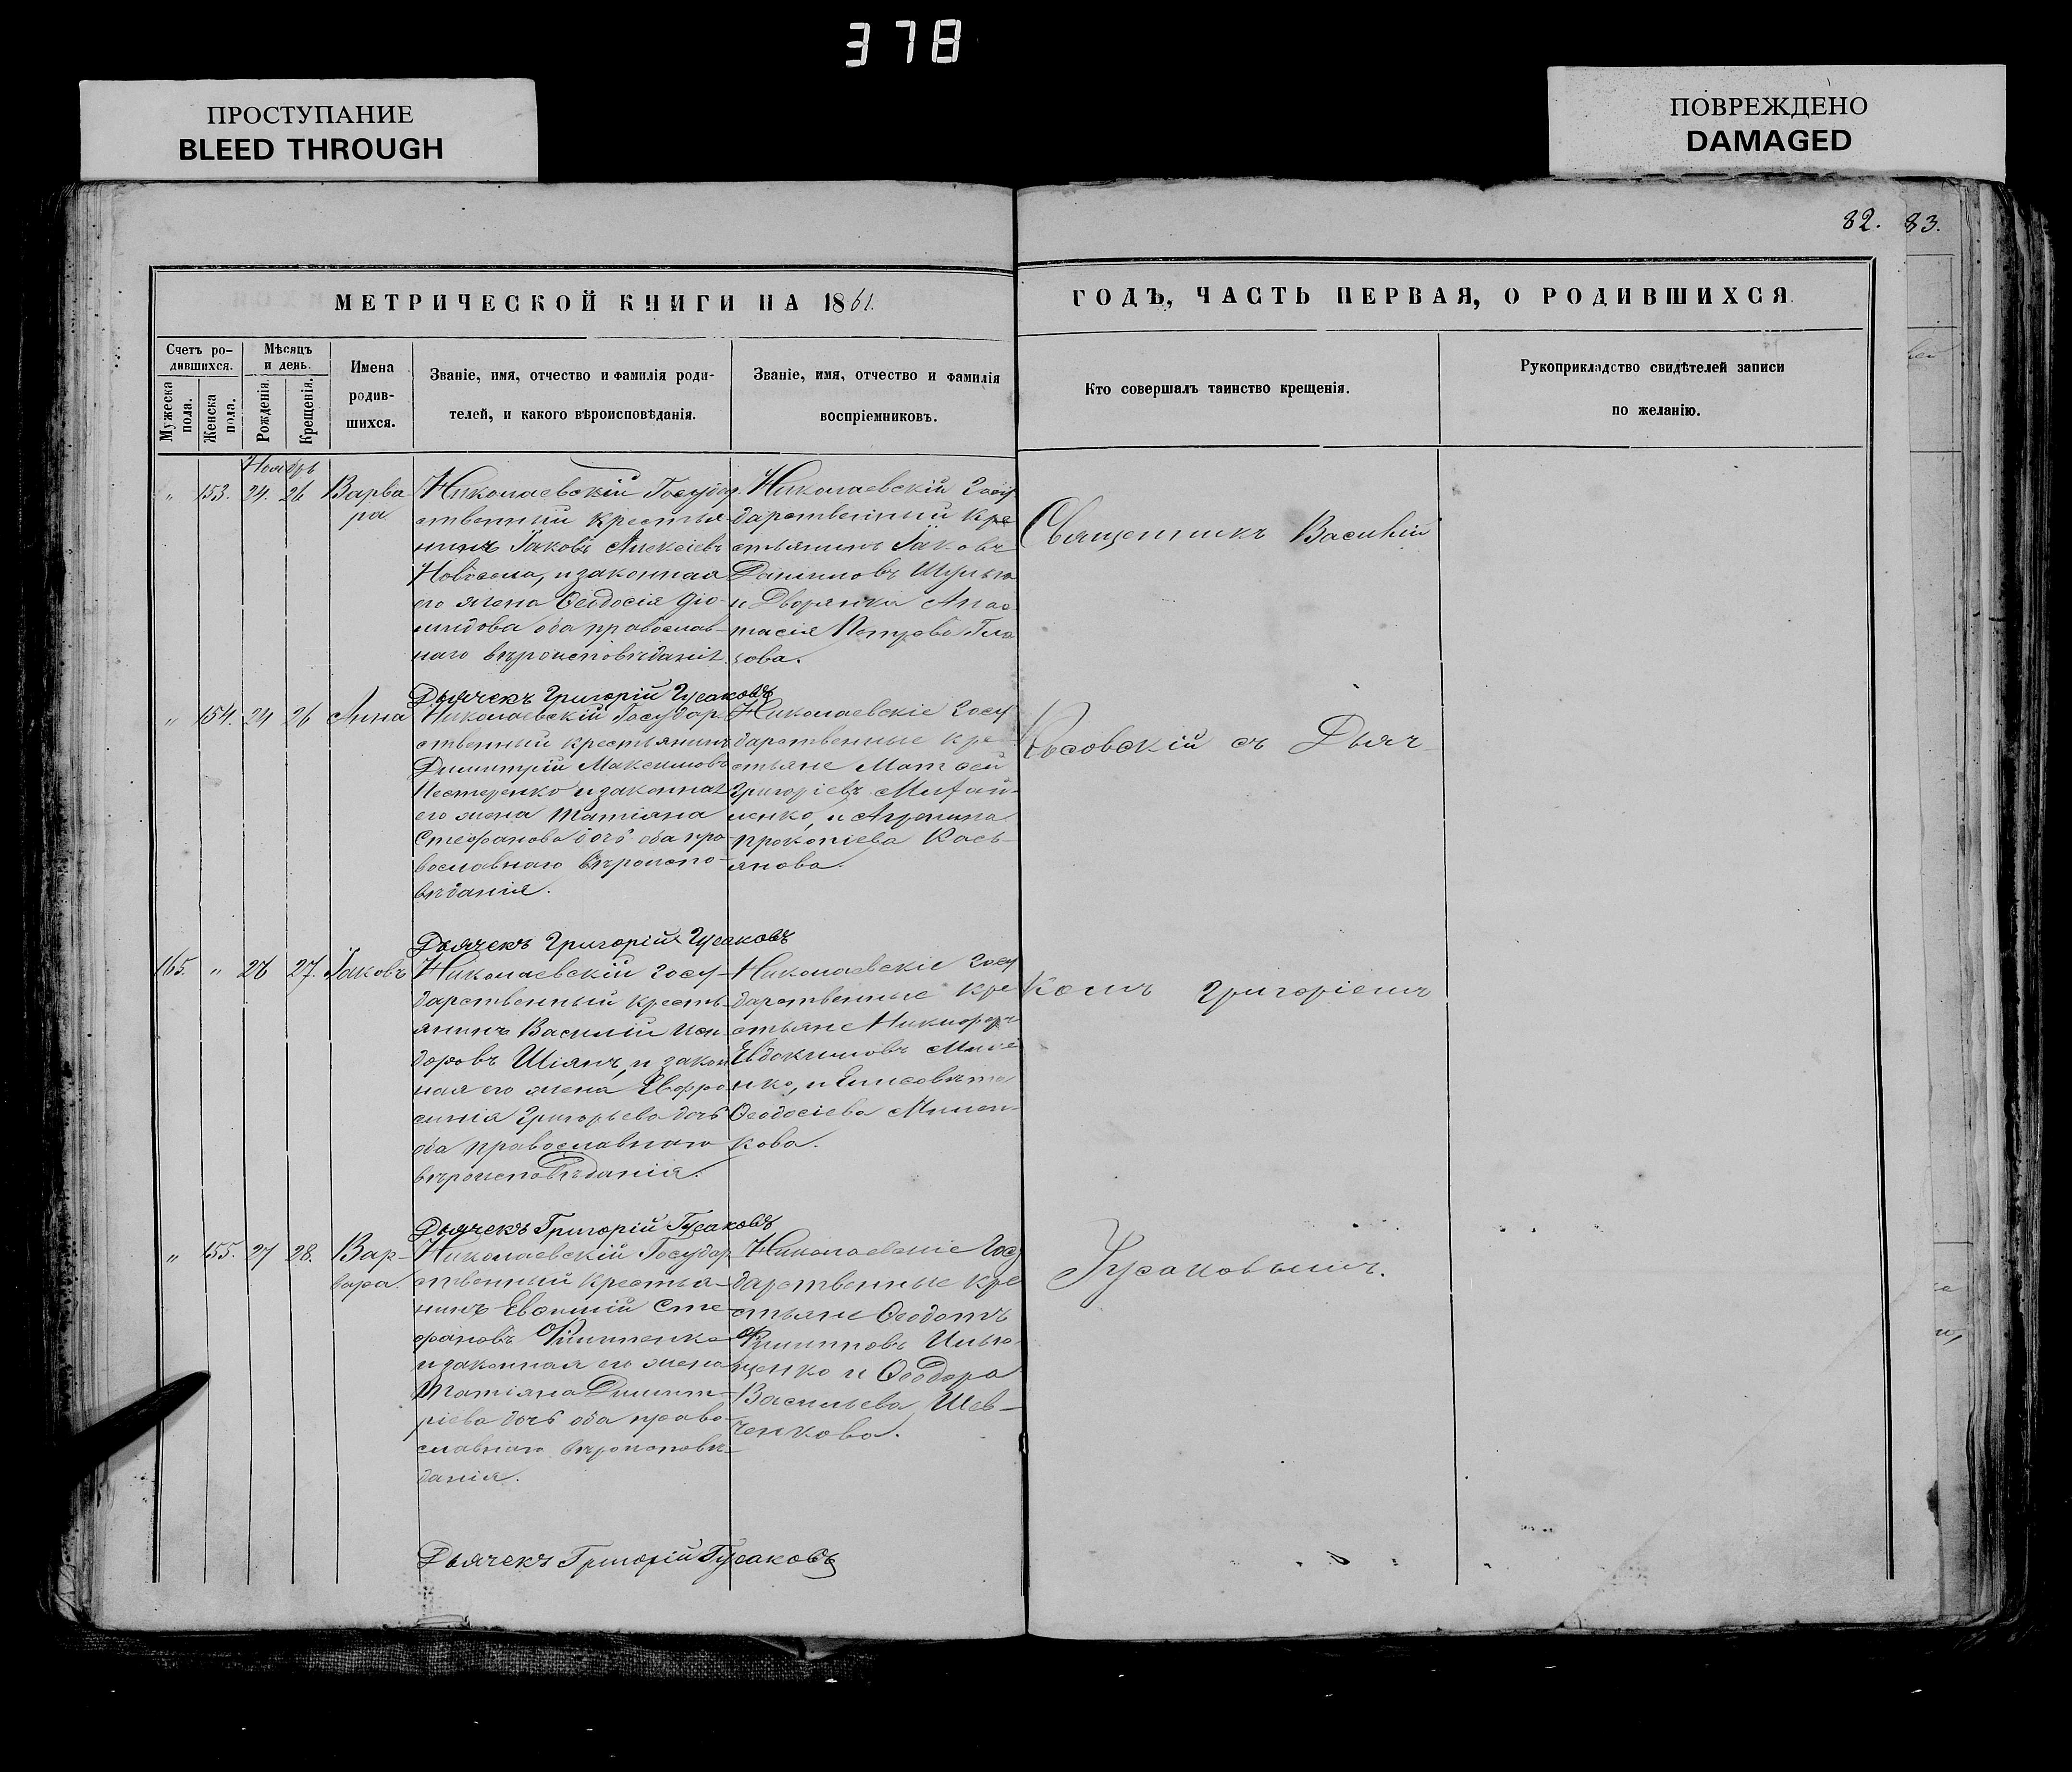 378
ПРОСТУПАНИЕ
BLEED THROUGH
ПОВРЕЖДЕНО
DAMAGED
82. 83.
МЕТРИЧЕСКОЙ КНИГИ НА 1861.
ГОДЪ, ЧАСТЬ ПЕРВАЯ, О РОДИВШИХСЯ
Счетъ ро-
дившихся.
Мужеска
пола.
Женска
пола.
Мѣсяцъ
и день.
Рожденія.
Крещенія.
Имена
родив-
шихся.
Званіе, имя, отчество и фамилія роди-
телей, и какого вѣроисповѣданія.
Званіе, имя, отчество и фамилія
воспріемниковъ.
Кто совершалъ таинство крещенія.
Рукоприкладство свидѣтелей записи
по желанію.
Ноябрь
" 153. 24. 26 Варва
ра
Николаевскій Государ
ственный крестья
нинъ Іаковъ Алексіевъ
Новосела, и законная
его жена Ѳеодосія Діо-
мидова оба православ-
наго вѣроисповѣданія.
Николаевскій Госу
дарственный кре
стьянинъ Іаковъ
Даниловъ Шульга
и Дворянка Анас
тасія Петрова Гла
зова.
Дьячекъ Григорій Гусаковъ
" 154. 24 26 Анна
Николаевскій Государ
ственный крестьянинъ
Димитрій Максимовъ
Нестеренко и законная
его жена Татіана
Стефанова дочь оба пра
вославнаго вѣроиспо-
вѣданія.
Николаевскіе Госу
дарственные кре
стьяне Матѳей
Григоріевъ Михай-
ленко, и Агрипина
Прокопіева Кась-
янова.
Дьячекъ Григорій Гусаковъ
165. " 26 27. Іаковъ
Николаевскій госу-
дарственный кресть-
янинъ Василій Иси-
доровъ Шіянъ, и закон
ная его жена Евфро
синія Григорьева дочь
оба православнаго
вѣроисповѣданія.
Николаевскіе госу
дарственные кре
стьяне Никифоръ
Евдокимовъ
нко, и Елисавета
Ѳеодосіева Милен-
кова.
Дьячекъ Григорій Гусаковъ
" 155. 27 28. Вар-
вара.
Николаевскій Государ
ственный крестья-
нинъ Евѳимій Сте-
фановъ Филипенко
и законная его жена
Татіана Димит-
ріева дочь оба право-
славнаго вѣроисповѣ-
данія.
Николаевскіе Госу
дарственные кре
стьяне Ѳеодотъ
Филиповъ Илью-
щенко и Ѳеодора
Васильева Шев-
ченкова.
Дьячекъ Григорій Гусаковъ
Священникъ Василій
Косовскій съ Дьяч-
комъ Григоріемъ
Гусаковымъ.